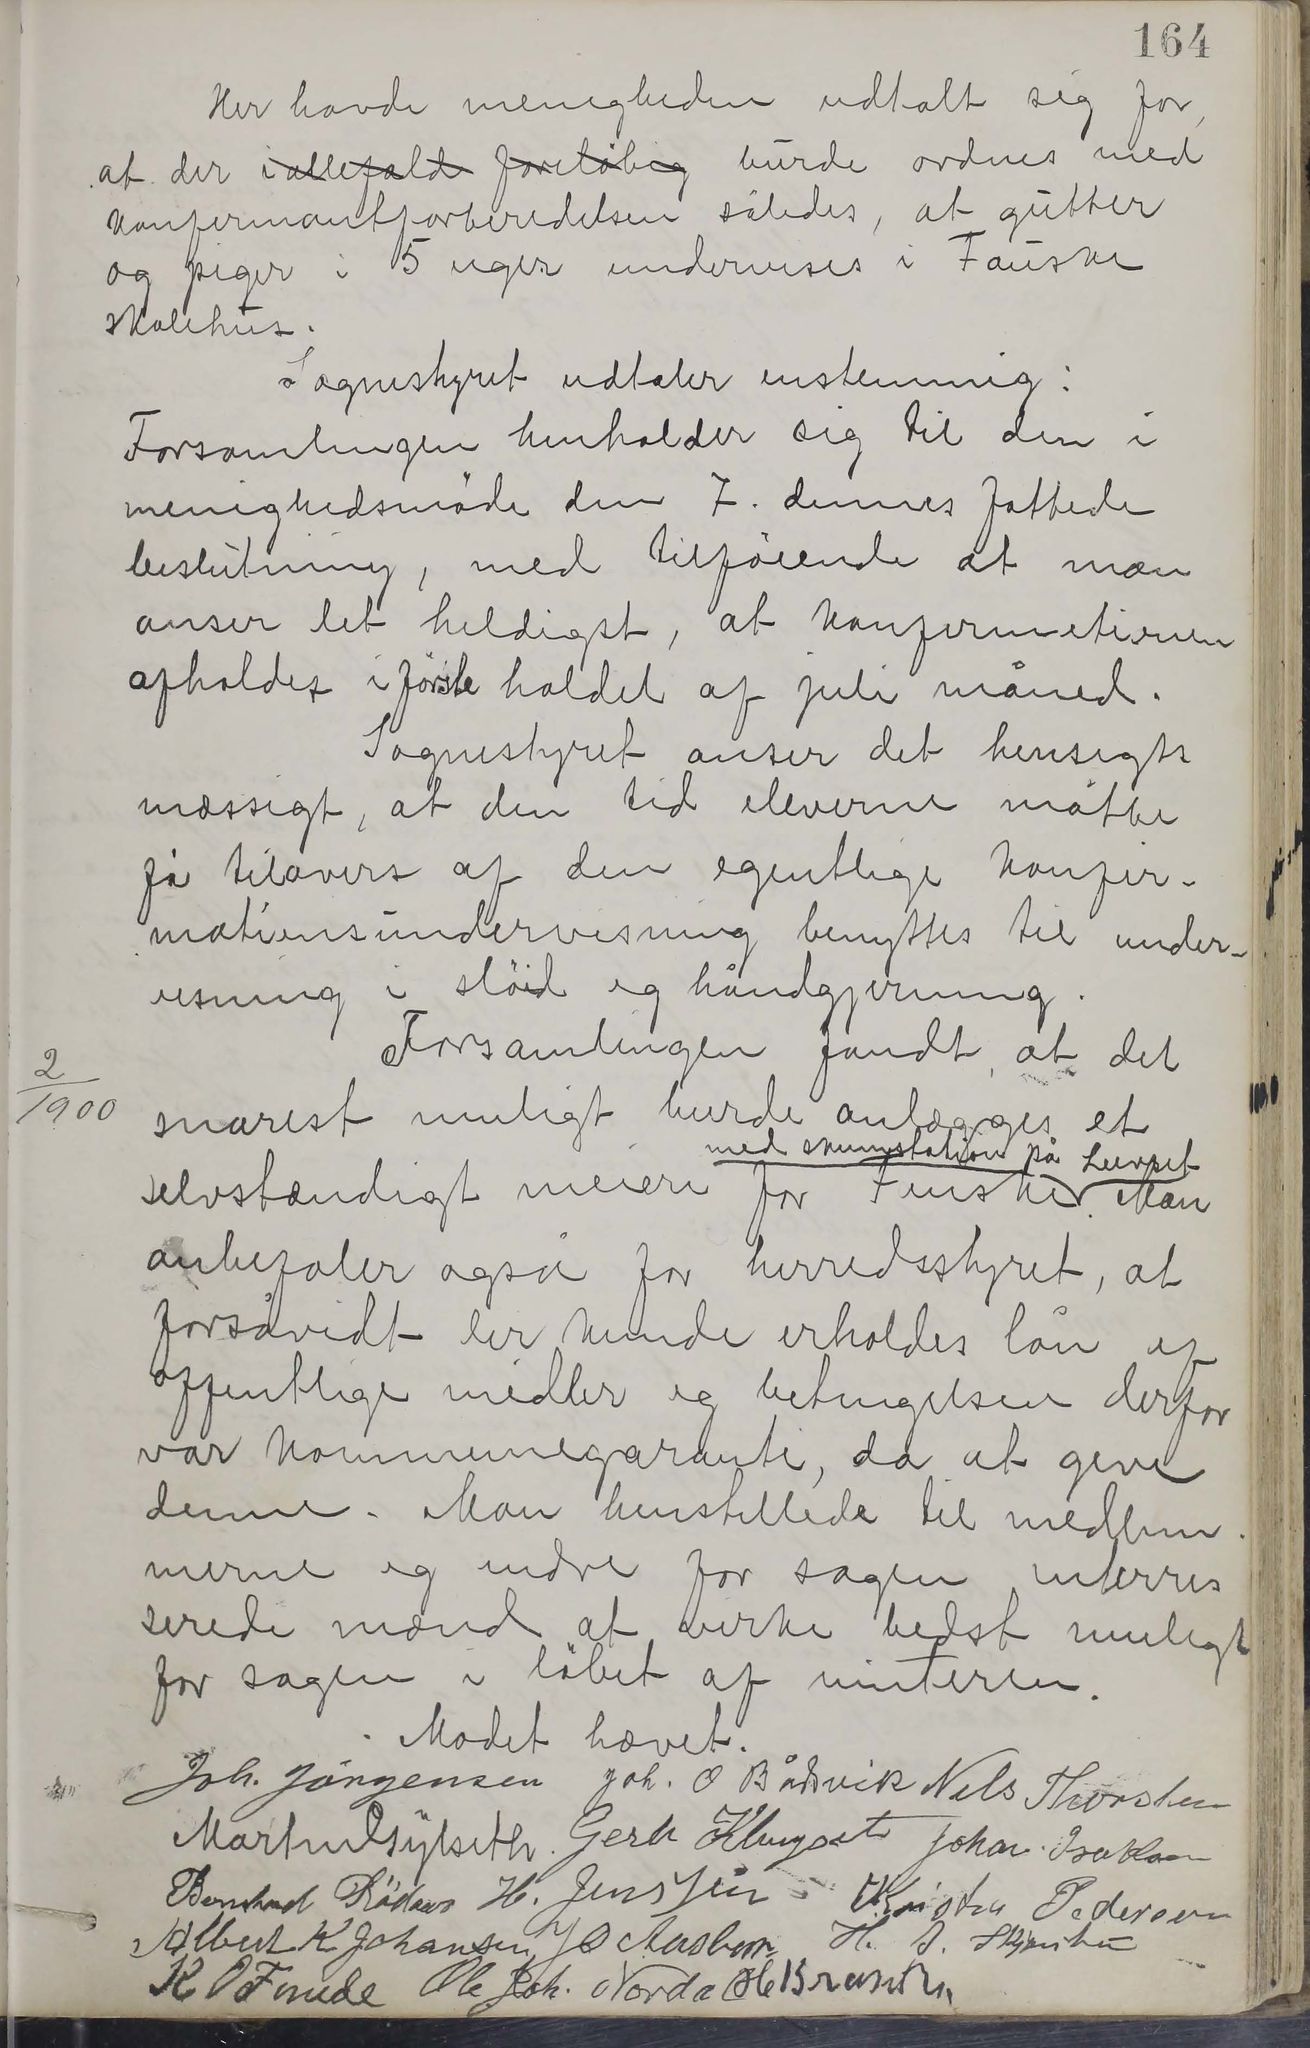 164
Her havde menigheden udtalt sig for,
at der iallefald foreløbig burde ordnes med
konfirmantforberedelsen således, at gutter
og piger i 5 uger undervises i Fauske
skolehus.
Sognestyret udtaler enstemmig:
Forsamlingen henholder sig til den i
menighedsmöde den 7. dennes fattede
beslutning, med tilföiende at man
anser det heldigst, at konfirmationen
afholdes i förste haldel af juli måned.
Sognestyret anser det hensigts
mæssigt, at den tid eleverne måtte
få tilovers af den egentlige konfir-
mationsundervisning benyttes til under-
visning i slöid og håndgjerning.
2/1900
Forsamlingen fandt, at det
snarest muligt burde anlægges et
med skumstation på Leivset
selvstændigt meieri for Fauske. Man
anbefaler også for herredsstyret, at
forsåvidt der kunde erholdes lån af
offentlige midler og betingelsen derfor
var kommunegaranti, da at give
denne. Man henstillede til medlem
merne og andre for sagen interres
serede mænd at virke bedst muligt
for sagen i löbet af vinteren.
Mødet hævet.
Joh. Jörgensen Joh. O Båtsvik Nils Thorsten
Martin Gerh Klungset Johan Isaksen
Bernhard H. Jensen Kristen Pedersen
Albert K Johansen H.
K O Ole Joh. Norda